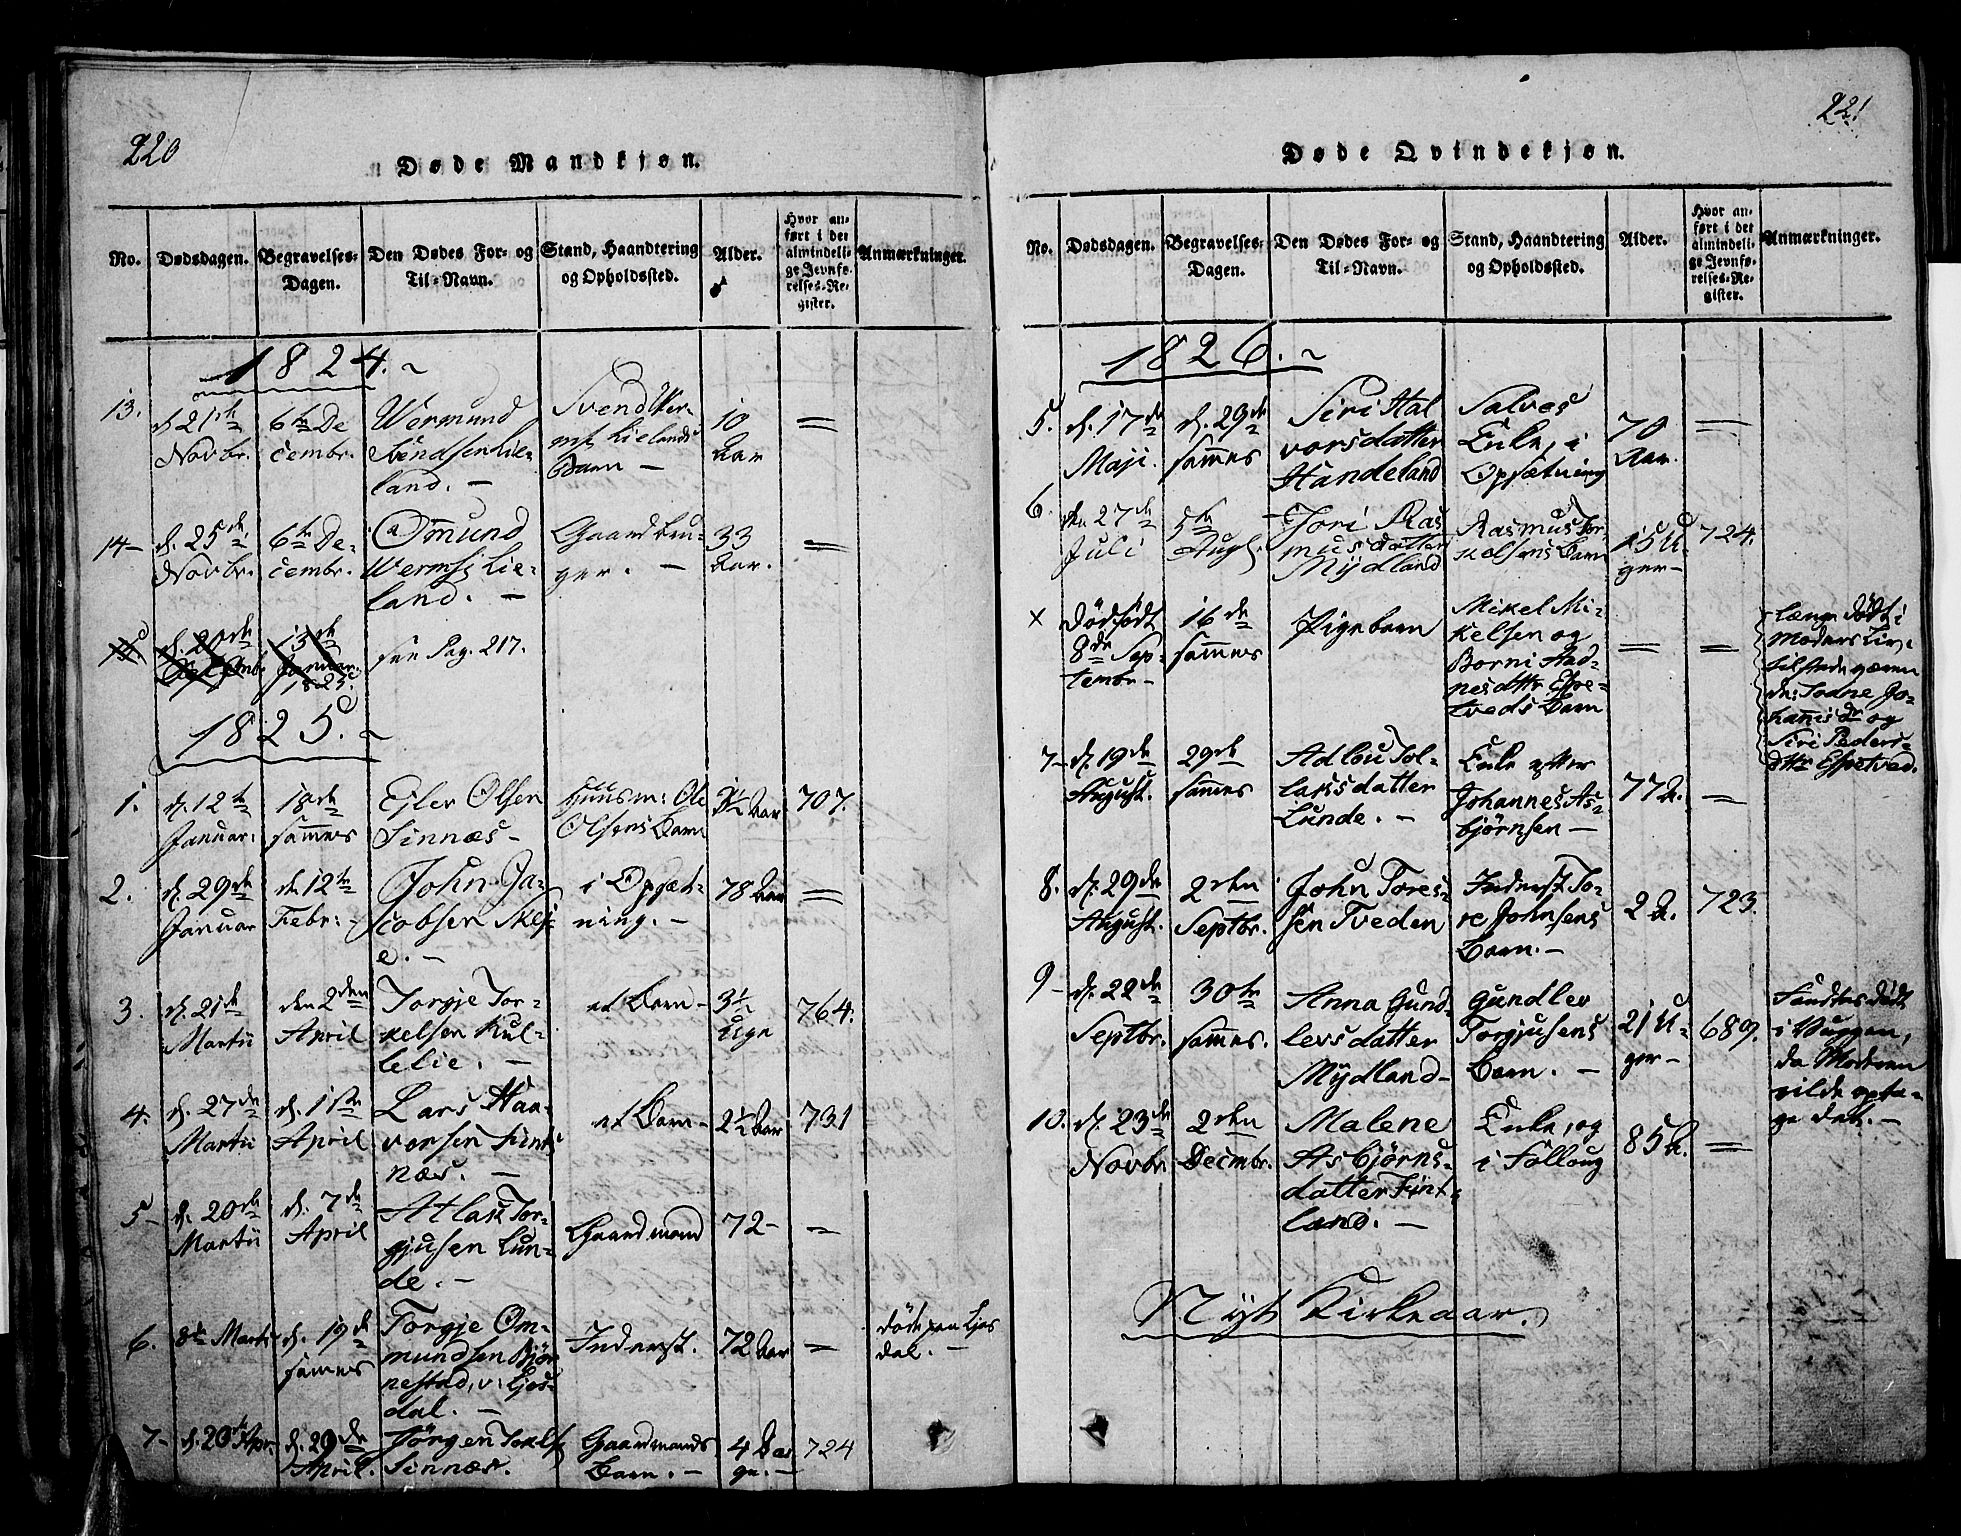 220
Døde Mandkjøn.
No.
Dødsdagen.
Begravelses-
Dagen.
Den Dødes For- og
Til-Navn.
Stand, Haandtering
og Opholdssted.
Alder.
Hvor an-
ført i det
almindeli-
ge Jevnfø-
relses-Re-
gister.
Anmærkninger.
1824.
13.
d. 21de
Novbr.
6te De
cembr.
Wermund
Svendsen Lie-
land.
Svend Wer-
Lielands
Barn
10
Aar
14
d. 25de
Novbr.
6te De-
cembr.
Omund
Werms: Lie-
land.
Gaardbru-
ger.
33
Aar.
15.
d. 20de
13de
Januar.
1825.
see Pag. 217.
1825.
1.
d. 12te
Januar.
18de
sammes
Ejler Olsen
Sinnæs
Huusm: Ole
Olsens Barn
Aar
707.
2.
d. 29de
Januar
d. 12te
Febr:
John Ja-
cobsen
e.
i Opsæt-
ning.
78 Aar
3.
d. 21de
Martii
den 2den
April
Torgje Tor-
kelsen Kul-
lelie.
et Barn
3½
Uge
764.
4.
d. 27de
Martii
d. 11te
April
Lars Haa-
vorsen Sint-
næs.
et Barn
2½ Aar
731
5
d. 20de
Martii
d. 7de
April
Atlak Tor-
gjusen Lun-
de.
Gaardmand
72
6.
8de Martii
d. 19de
sammes
Torgje Om-
mundsen Bjør
nestad, v: Ljos-
dal.
Inderst.
72 Aar
døde paa Ljos
dal.
7
d. 20de Apr.
d. 29de
April.
Jørgen
Sinnæs.
Gaardmands
Barn.
4 Da
ge.
724
221
Døde Qvindekjøn.
No.
Dødsdagen.
Begravelses-
Dagen.
Den Dødes For- og
Til-Navn.
Stand, Haandtering
og Opholdssted.
Alder.
Hvor an-
ført i det
almindeli-
ge Jevnfø-
relses-Re-
gister.
Anmærkninger.
1826.
5.
d. 17de
Maji.
d. 29de
sammes
Siri Hal
vorsdatter
Handeland
Salves
Enke, i
Opsætning
70
Aar.
6.
den 27de
Juli
5te
Augl.
Jori Ras
musdatter
Mydland
Rasmus Tor-
kelsens Barn
15 U-
ger
724.
×
Dødfødt
8de Sep-
tembr
16de
sammes
Pigebarn
Mikel Mi-
kelsen og
Borni Aad-
nesdttr Espe-
tveds Barn
længe død i
Moders Liv,
tilstedeværen
de: Todne Jo-
hannisdr og
Siri Peders-
dttr Espetved.
7
d. 19de
August.
29de
sammes
Adlou Tol-
laksdatter
Lunde.
Enke efter
Johannes As-
bjørnsen
77 A.
8.
d. 29de
August.
2den
Septbr.
John Tores-
sen Tveden
Inderst To-
re Johnsens
Barn.
2 A.
723.
9
d. 22de
Septbr.
30te
sammes.
Anna Gund-
levsdatter
Mydland
Gundlev
Torgjusens
Barn.
21 U-
ger
689.
Fandtes død
i Vuggen,
da Moderen
vilde opta-
ge det.
10.
d. 23de
Novbr.
2den
Decmbr.
Malene
Asbjørns-
datter Fint-
land.
Enke, og
i Følloug
85 A.
Nyt Kirkeaar.